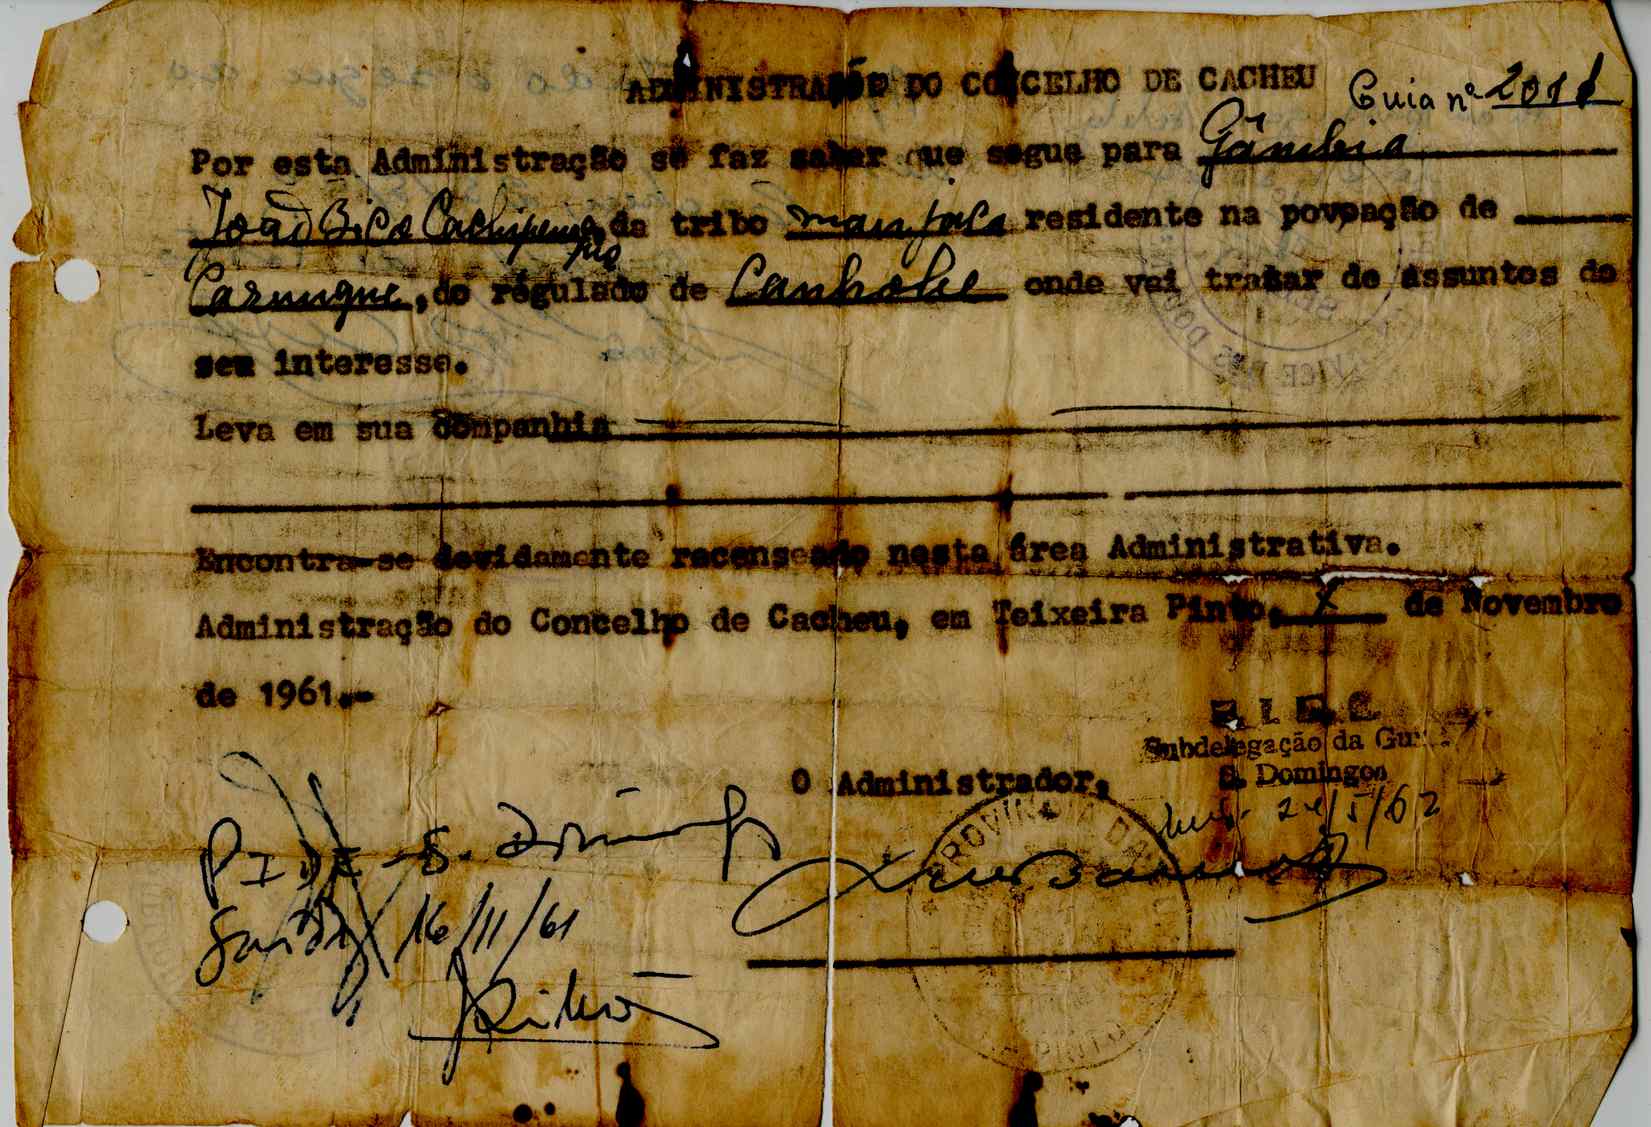 ADMINISTRAÇÃO DO CONCELHO DE CACHEU
Guia nº 2011
Por esta Administração se faz saber que segue para Gâmbia
João Bico da tribo manjaca residente na povoação de
do régulado de Canhobe onde vai tratar de assuntos do
seu interesse.
Leva em sua companhia
Encontra-se devidamente recenseado nesta área Administrativa.
Administração do Concelho de Cacheu, em Teixeira Pinto, X de Novembro
de 1961.-
P. I. D. E.
Subdelegação da Gui
S. Domingos
24/5/62
O Administrador,
PIDE - S. Domingos
Saída 16/11/61
PROVINCIA DA
PINTO
SERVICE DES DOU